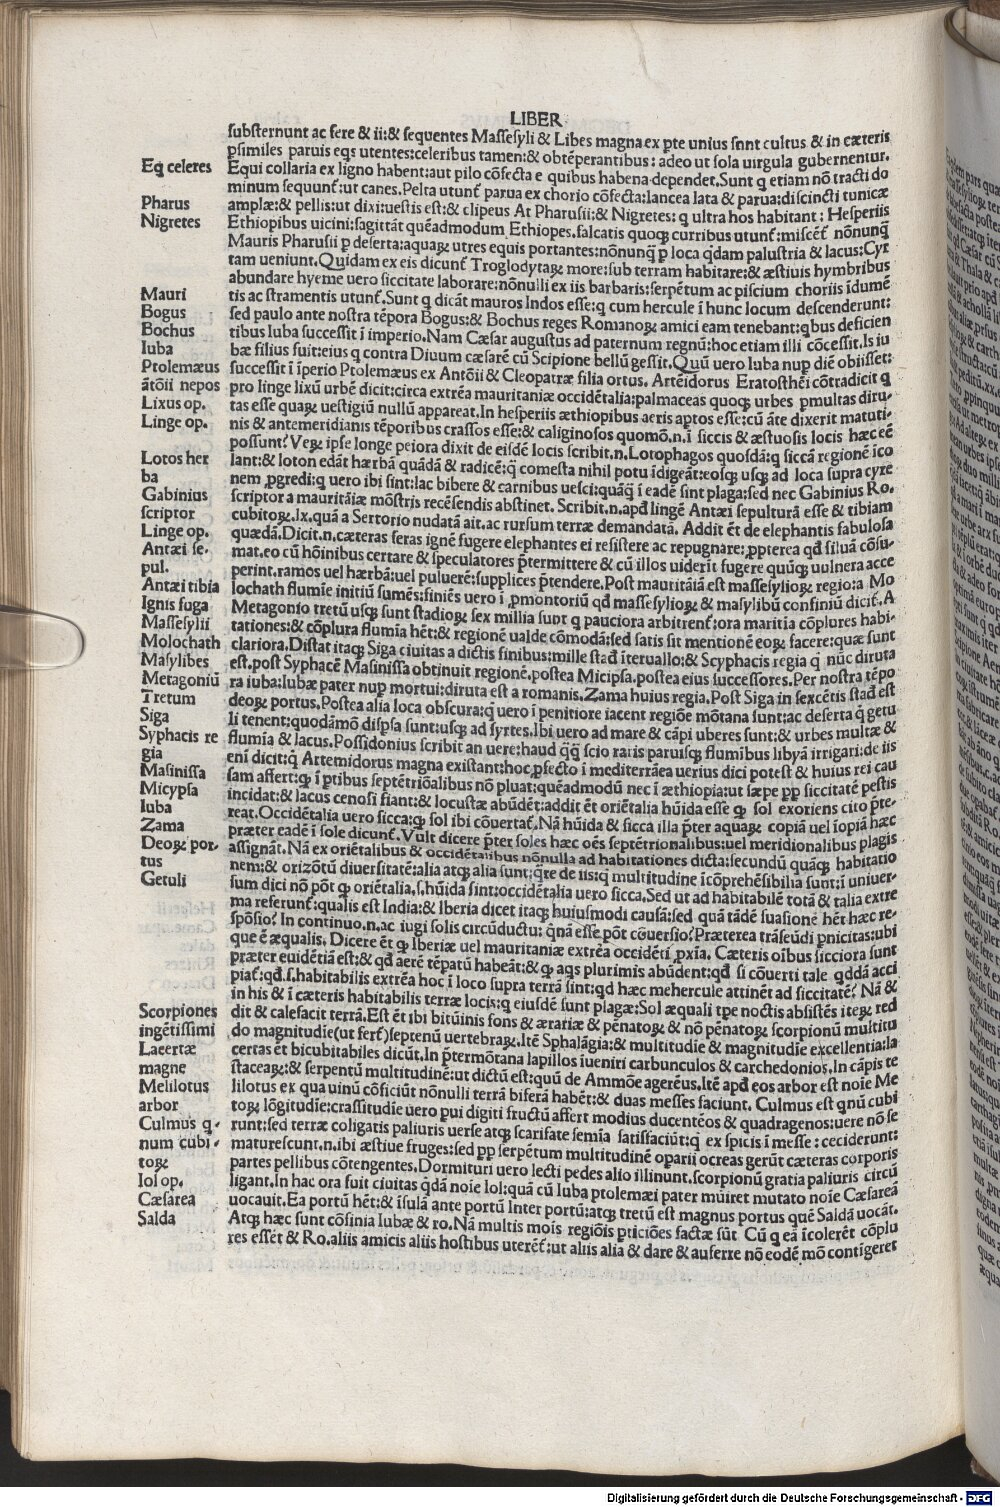 LIBER
substernunt ac fere & ii:& sequentes Massesyli & Libes magna ex pte unius sunt cultus & in cæteris
psimiles paruis eqs utentes:celeribus tamen:& obtẽperantibus: adeo ut sola uirgula gubernentur.
Eq celeres
Equi collaria ex ligno habent:aut pilo cõfecta e quibus habena dependet.Sunt q etiam nõ tracti do
minum sequunt̃:ut canes.Pelta utunt̃ parua ex chorio cõfecta:lancea lata & parua:discincti tunicæ
Pharus
amplæ:& pellis:ut dixi:uestis est:& clipeus At Pharusii:& Nigretes: q ultra hos habitant: Hesperiis
Nigretes
Ethiopibus uicini:sagittãt quẽadmodum Ethiopes.falcatis quoqꝫ curribus utunt̃:miscẽt̃ nõnunq̃
Mauris Pharusii p deserta:aquaꝝ utres equis portantes:nõnunq̃ p loca q̃dam palustria & lacus:Cyr
tam ueniunt.Quidam ex eis dicunt̃ Troglodytaꝝ more:sub terram habitare:& æstiuis hymbribus
abundare hyeme uero siccitate laborare:nõnulli ex iis barbaris:serpẽtum ac piscium choriis ĩdumẽ
Mauri
tis ac stramentis utunt̃.Sunt q dicãt mauros Indos esse:q cum hercule ĩ hunc locum descenderunt:
Bogus
sed paulo ante nostra tẽpora Bogus:& Bochus reges Romanoꝝ amici eam tenebant:qbus deficien
Bochus
tibus Iuba successit ĩ imperio.Nam Cæsar augustus ad paternum regnũ:hoc etiam illi cõcessit.Is iu
Iuba
bæ filius fuit:eius q contra Diuum cæsarẽ cũ Scipione bellũ gessit.Quũ uero Iuba nup diẽ obiisset:
Ptolemæus
successit ĩ ĩperio Ptolemæus ex Antõii & Cleopatræ filia ortus. Artẽidorus Eratosthẽi cõtradicit q
ãtõii nepos
pro linge lixũ urbẽ dicit:circa extrẽa mauritaniæ occidẽtalia:palmaceas quoqꝫ urbes pmultas diru
Lixus op.
tas esse quaꝝ uestigiũ nullũ appareat.In hesperiis æthiopibus aeris aptos esse:cũ ãte dixerit matuti-
Linge op.
nis & antemeridianis tẽporibus crassos esse:& caliginosos quomõ.n.ĩ siccis & æstuosis locis hæc eẽ
possunt?Veꝝ ipse longe peiora dixit de eisdẽ locis scribit.n.Lotophagos quosdã:q siccã regionẽ ĩco
Lotos her
lant:& loton edãt hærbã quãdã & radicẽ:q̃ comesta nihil potu ĩdigẽat:eosqꝫ usqꝫ ad loca supra cyre
ba
nem ꝓgredi:q uero ibi sint:lac bibere & carnibus uesci:quãq̃ ĩ eadẽ sint plaga:sed nec Gabinius Ro.
Gabinius
scriptor a mauritãiæ mõstris recẽsendis abstinet. Scribit.n.apd lingẽ Antæi sepulturã esse & tibiam
scriptor
cubitoꝝ.lx.quã a Sertorio nudatã ait.ac rursum terræ demandatã. Addit ẽt de elephantis fabulosa
Linge op.
quædã.Dicit.n.cæteras feras ignẽ fugere elephantes ei resistere ac repugnare:ꝓpterea qđ siluã cõsu-
Antæi se-
mat.eo cũ hõinibus certare & speculatores p̃termittere & cũ illos uiderĩt fugere quũqꝫ uulnera acce
pul.
perint.ramos uel hærbã:uel puluerẽ:supplices p̃tendere.Post mautitãiã est massesylioꝝ regio:a Mo
Antæi tibia
lochath flumĩe initiũ sumẽs:finiẽs uero ĩ ꝓmontoriũ qđ massesylioꝝ & masylibũ confiniũ dicit̃.A
Ignis fuga
Metagonio tretũ usqꝫ sunt stadioꝝ sex millia sunt q pauciora arbitrent̃:ora maritia cõplures habi-
Massesylii
tationes:& cõplura flumĩa hẽt:& regionẽ ualde cõmodã:sed satis sit mentionẽ eoꝝ facere:quæ sunt
Molochath
clariora.Distat itaqꝫ Siga ciuitas a dictis finibus:mille stađ ĩteruallo:& Scyphacis regia q̃ nũc diruta
Masylibes
est.post Syphacẽ Masinissa obtinuit regionẽ.postea Micipsa.postea eius successores.Per nostra tẽpo
Metagoniũ
ra iuba:Iubæ pater nup mortui:diruta est a romanis.Zama huius regia.Post Siga in sexcẽtis stađ est
Tretum
deoꝝ portus.Postea alia loca obscura:q̃ uero ĩ penitiore iacent regiõe mõtana sunt:ac deserta q̃ getu
Siga
li tenent:quodãmõ dispsa sunt:usqꝫ ad syrtes.Ibi uero ad mare & cãpi uberes sunt:& urbes multæ &
Syphacis re
flumĩa & lacus.Possidonius scribit an uere:haud q̃q̃ scio raris paruisqꝫ flumĩbus libyã irrigari:de iis
gia
enĩ dicit:q̃ Artemidorus magna existant:hoc ꝓfecto ĩ mediterrãea uerius dici potest & huius rei cau
Masinissa
sam affert:qꝙ ĩ ptibus septẽtriõalibus nõ pluat:quẽadmodũ nec ĩ æthiopia:ut sæpe pp siccitatẽ pestis
Micypsa
incidat:& lacus cenosi fiant:& locustæ abũdẽt:addit ẽt oriẽtalia hũida esse qꝙ sol exoriens cito p̃te-
Iuba
reat.Occidẽtalia uero sicca:qꝙ sol ibi cõuertat̃.Nã hũida & sicca illa p̃ter aquaꝝ copiã uel ĩopiã hæc
Zama
præter eadẽ ĩ sole dicunt̃.Vult dicere p̃ter soles hæc oẽs septẽtrionalibus:uel meridionalibus plagis
Deoꝝ por.
assignãt.Nã ex oriẽtalibus & occidẽtalibus nõnulla ad habitationes dicta:secundũ quãqꝫ habitatio
tus
nem:& orizõtũ diuersitatẽ:alia atqꝫ alia sunt:q̃re de iis:q̃ multitudine ĩcõprehẽsibilia sunt:ĩ uniuer-
Getuli
sum dici nõ põt qꝙ oriẽtalia.s.hũida sint:occidẽtalia uero sicca.Sed ut ad habitabilẽ totã & talia extre
ma referunt̃:qualis est India:& Iberia dicet itaqꝫ huiusmodi causã:sed quã tãdẽ suasionẽ hẽt hæc re-
spõsio? In continuo.n.ac iugi solis circũductu: q̃nã esse põt cõuersio? Præterea trãseũdi pnicitas:ubi
que ẽ æqualis. Dicere ẽt qꝙ Iberiæ uel mauritaniæ extrẽa occidẽti ꝓxĩa. Cæteris oĩbus sicciora sunt
præter euidẽtiã est:& qđ aerẽ tẽpatũ habeãt:& qꝙ aqs plurimis abũdent:qđ si cõuerti tale qddã acci
piat̃:qđ.s.habitabilis extrẽa hoc ĩ loco supra terrã sint:qđ hæc mehercule attinẽt ad siccitatẽ? Nã &
in his & ĩ cæteris habitabilis terræ locis:q̃ eiusdẽ sunt plagæ:Sol æquali tpe noctis absistẽs iteꝝ red
Scorpiones
dit & calefacit terrã.Est ẽt ibi bitũinis fons & ærariæ & pẽnatoꝝ & nõ pẽnatoꝝ scorpionũ multitu
ingẽtissimi
do magnitudĩe(ut fert̃)septenũ uertebraꝝ.Itẽ Sphalãgia:& multitudĩe & magnitudĩe excellentia:la
Lacertæ
certas ẽt bicubitabiles dicũt.In p̃termõtana lapillos ĩueniri carbunculos & carchedonios.In cãpis te
magne
staceaꝝ:& serpentũ multitudinẽ:ut dictũ est:quũ de Ammõe agerẽus.Itẽ apđ eos arbor est noĩe Me
Melilotus
lilotus ex qua uinũ cõficiũt nõnulli terrã biferã habẽt:& duas messes faciunt. Culmus est qnũ cubi
arbor
toꝝ lõgitudĩe:crassitudĩe uero pui digiti fructũ affert modius ducentẽos & quadragenos:uere nõ se
Culmus q-
runt:sed terræ coligatis paliuris uerse atqꝫ scarifate semĩa satisfaciũt:q̃ ex spicis ĩ messe:ceciderunt:
num cubi-
maturescunt.n.ibi æstiue fruges:sed pp serpẽtum multitudinẽ oparii ocreas gerũt cæteras corporis
toꝝ
partes pellibus cõtengentes.Dormituri uero lecti pedes alio illinunt.scorpionũ gratia paliuris circũ
Iol op.
ligant.In hac ora fuit ciuitas q̃dã noĩe Iol:quã cũ Iuba ptolemæi pater mũiret mutato noĩe Cæsareã
Cæsarea
uocauit.Ea portũ hẽt:& ĩsulã ante portũ Inter portũ:atqꝫ tretũ est magnus portus quẽ Saldã uocãt.
Salda
Atqꝫ hæc sunt cõfinia Iubæ & ro.Nã multis mois regiõis pticiões factæ sũt Cũ q eã ĩcolerẽt cõplu
res essẽt & Ro.aliis amicis aliis hostibus uterẽt̃:ut aliis alia & dare & auferre nõ eodẽ mõ contĩgeret
Digitalisierung gefördert durch die Deutsche Forschungsgemeinschaft - DFG